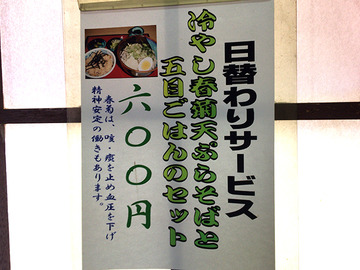 日替わりサービス
冷やし春菊天ぷらそばと
五目ごはんのセット
六〇〇円
春菊は、咳・痰を止め血圧を下げ
精神安定の働きもあります。